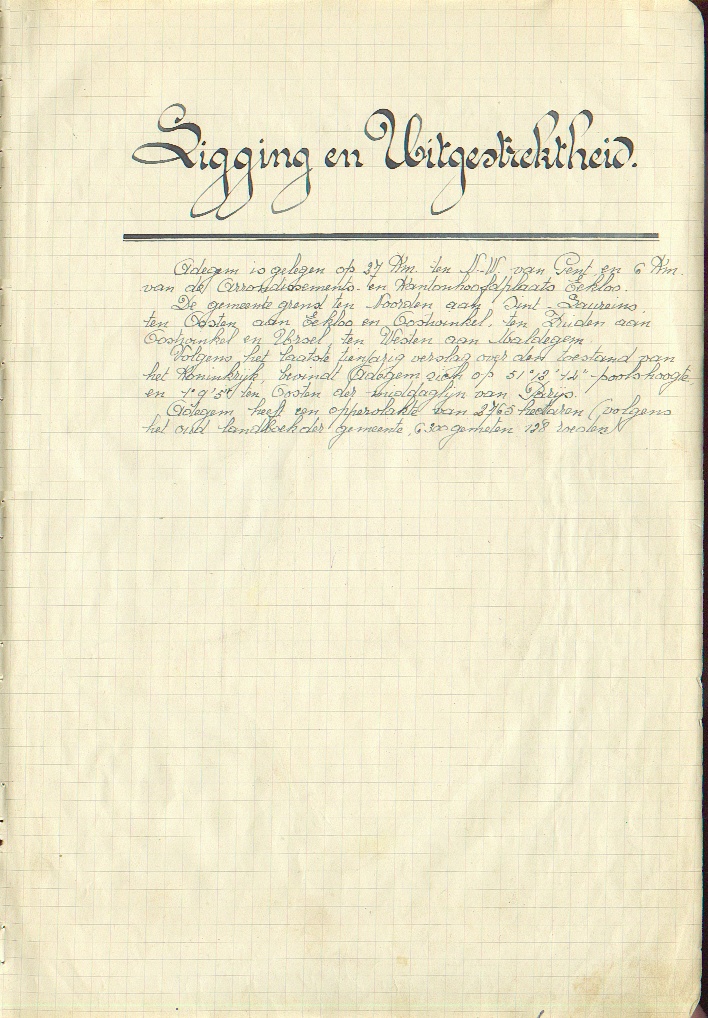 Ligging en Uitgestrektheid.
Adegem is gelegen op 27 Km. ten N.-W. van Gent en 6 Km.
van de Arrondissements- en Kantonhoofdplaats Eekloo.
De gemeente grend ten Noorden aan Sint-Laureins,
ten Oosten aan Eekloo en Oostwinkel, ten Zuiden aan
Oostwinkel en Ursel, ten Westen aan Maldegem.
Volgens het laatste tienjarig verslag over den toestand van
het Koninkrijk, bevindt Adegem zich op 51° 12' 12" poolshoogte,
en 1° 9' 5" ten Oosten der middaglyn van Parys.
Adegem heeft een oppervlakte van 2765 hectaren (volgens
het oud landboek der gemeente, 6300 gemeten 128 roeden)